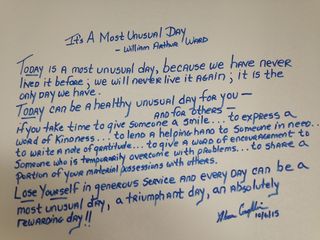 It's A Most Unusual Day
- William Arthur Ward
Today is a most unusual day, because we have never
lived it before; we will never live it again; it is the
only day we have.
Today can be a healthy unusual day for you —
and for others —
if you take time to give someone a smile... to express a
word of kindness... to lend a helping hand to someone in need...
to write a note of gratitude... to give a word of encouragement to
someone who is temporarily overcome with problems... to share a
portion of your material possessions with others.
Lose Yourself in generous service and every day can be a
most unusual day, a triumphant day, an absolutely
rewarding day!!
10/6/15